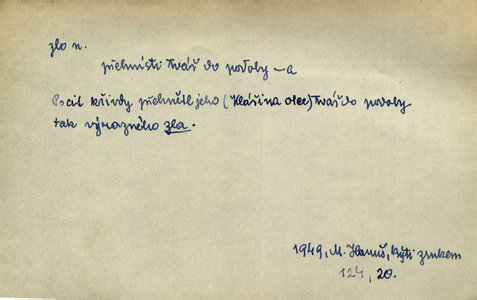 zlo n.
přehnísti tvář do podoby – a
Pocit křivdy přehnětl jeho (Klášina otce) tvář do podoby
tak výrazného zla.
1949, M. Hanuš, Býti zrnkem
124, 20.